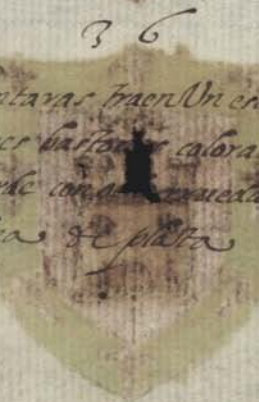 36
ntavas traen Un es
es bastones colora
rde con
de plata